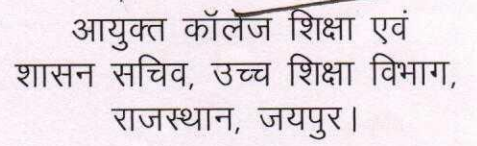 आयुक्त कॉलेज शिक्षा एवं
शासन सचिव, उच्च शिक्षा विभाग,
राजस्थान, जयपुर।